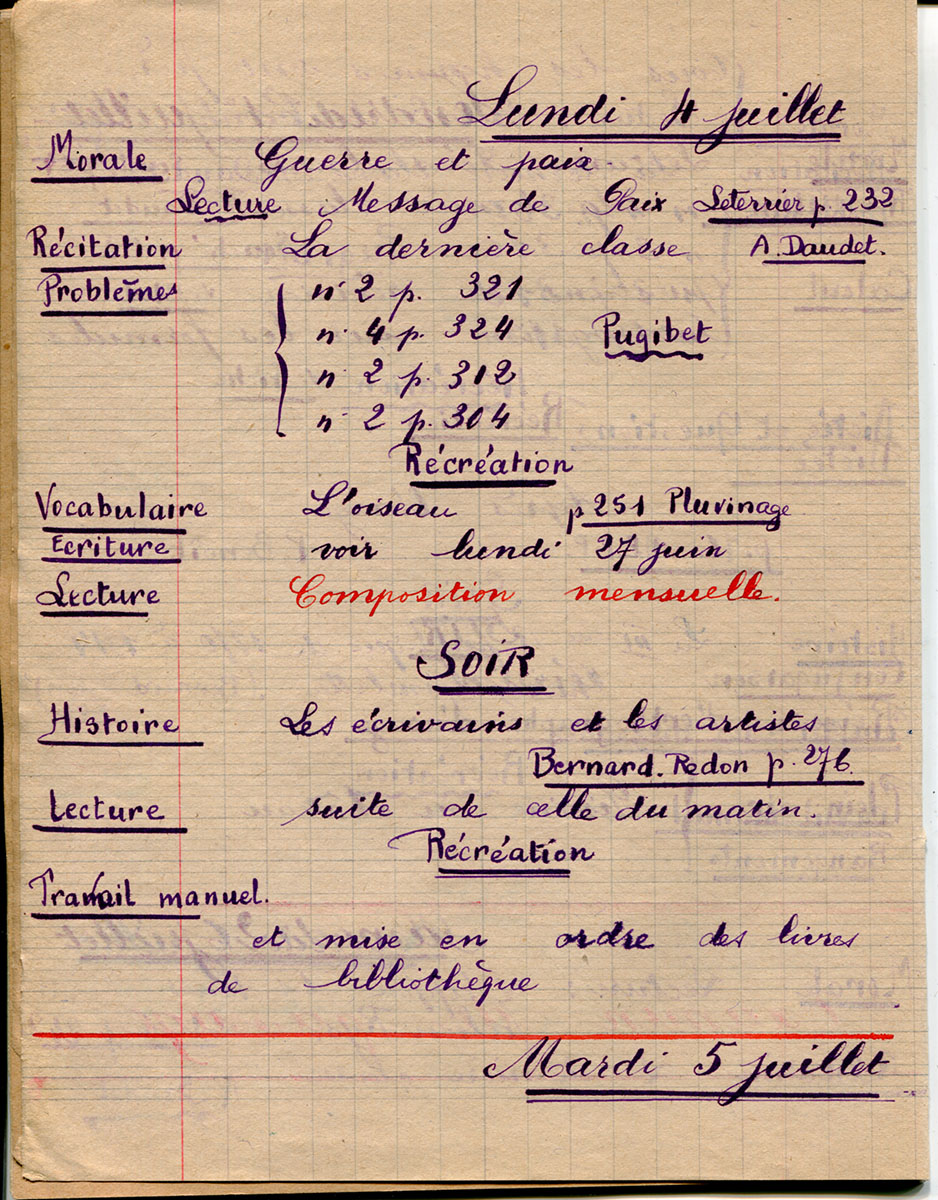 Lundi 4 juillet
Morale Guerre et paix.
Lecture Message de Paix Leterrier p. 232
Récitation La dernière classe A. Daudet.
Problèmes n° 2 p. 321
n° 4 p. 324 Pugibet
n° 2 p. 312
n° 2 p. 304
Récréation
Vocabulaire L'oiseau p 251 Pluvinage
Ecriture voir lundi 27 juin
Lecture Composition mensuelle.
SOIR
Histoire Les écrivains et les artistes
Bernard. Redon p. 276.
Lecture suite de celle du matin.
Récréation
Travail manuel.
et mise en ordre des livres
de bibliothèque
Mardi 5 juillet